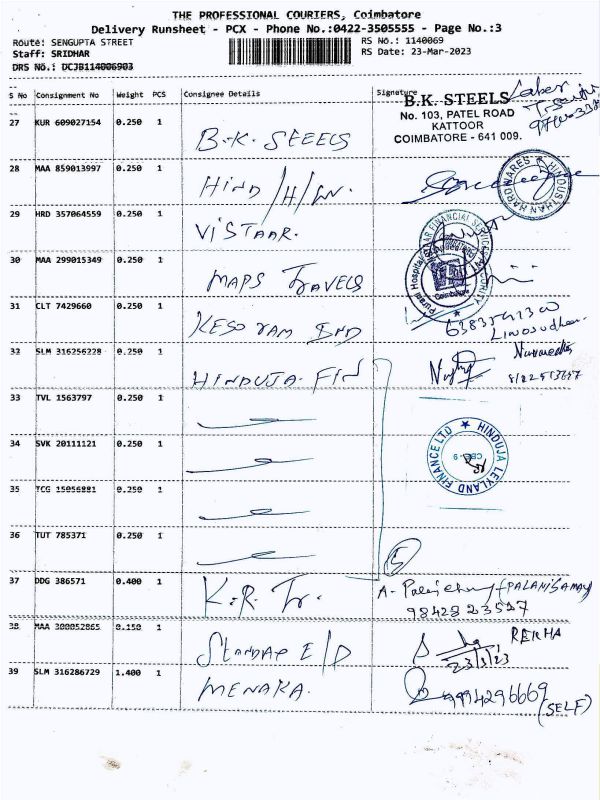 THE PROFESSIONAL COURIERS, Coimbatore
Delivery Runsheet - PCX - Phone No.:0422-3505555 - Page No.:3
Route: SENGUPTA STREET RS No.: 1140069
Staff: SRIDHAR RS Date: 23-Mar-2023
DRS No.: DCJB114006903
S No Consignment No Weight PCS Consignee Details Signature
B.K. STEELS
No. 103, PATEL ROAD
KATTOOR
COIMBATORE - 641 009.
27 KUR 609027154 0.250 1 B.K. STEELS
28 MAA 859013997 0.250 1 HIND /H/W.
HINDUSTHAN HARDWARES
29 HRD 357064559 0.250 1 VISTAAR.
FINANCIAL SERVICES
30 MAA 299015349 0.250 1 MAPS Travels
Hospital
SECURITY
Coimbatore
31 CLT 7429660 0.250 1 KESORAM IND
32 SLM 316256228 0.250 1 HINDUJA FIN
33 TVL 1563797 0.250 1
HINDUJA LEYLAND FINANCE LTD
CBE - 9
34 SVK 20111121 0.250 1
35 TCG 15056881 0.250 1
36 TUT 785371 0.250 1
5
37 DDG 386571 0.400 1 K.R. Tr. (PALANISAMY)
38 MAA 300052865 0.150 1 Standar E/D REKHA
23/3/23
39 SLM 316286729 1.400 1 MENAKA. 9994296669
(SELF)